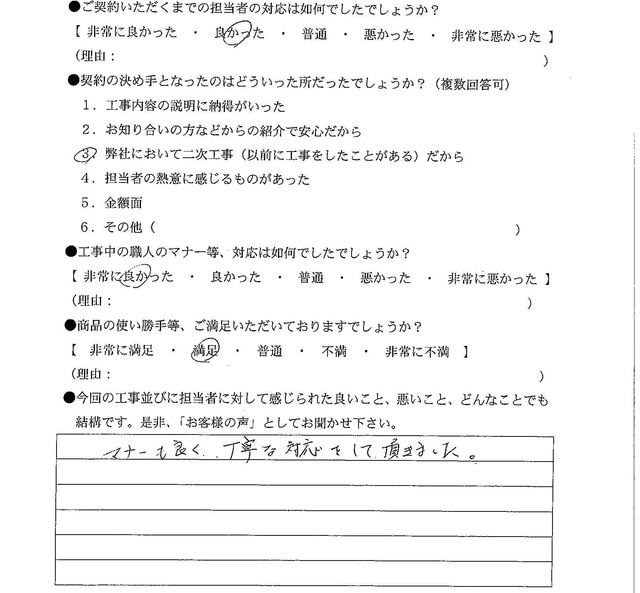 ●ご契約いただくまでの担当者の対応は如何でしたでしょうか？
【 非常に良かった ・ 良かった ・ 普通 ・ 悪かった ・ 非常に悪かった 】
（理由： ）
●契約の決め手となったのはどういった所だったでしょうか？（複数回答可）
１．工事内容の説明に納得がいった
２．お知り合いの方などからの紹介で安心だから
３．弊社において二次工事（以前に工事をしたことがある）だから
４．担当者の熱意に感じるものがあった
５．金額面
６．その他（ ）
●工事中の職人のマナー等、対応は如何でしたでしょうか？
【 非常に良かった ・ 良かった ・ 普通 ・ 悪かった ・ 非常に悪かった 】
（理由： ）
●商品の使い勝手等、ご満足いただいておりますでしょうか？
【 非常に満足 ・ 満足 ・ 普通 ・ 不満 ・ 非常に不満 】
（理由： ）
●今回の工事並びに担当者に対して感じられた良いこと、悪いこと、どんなことでも
結構です。是非、「お客様の声」としてお聞かせ下さい。
マナーも良く、丁寧な対応をして頂きました。